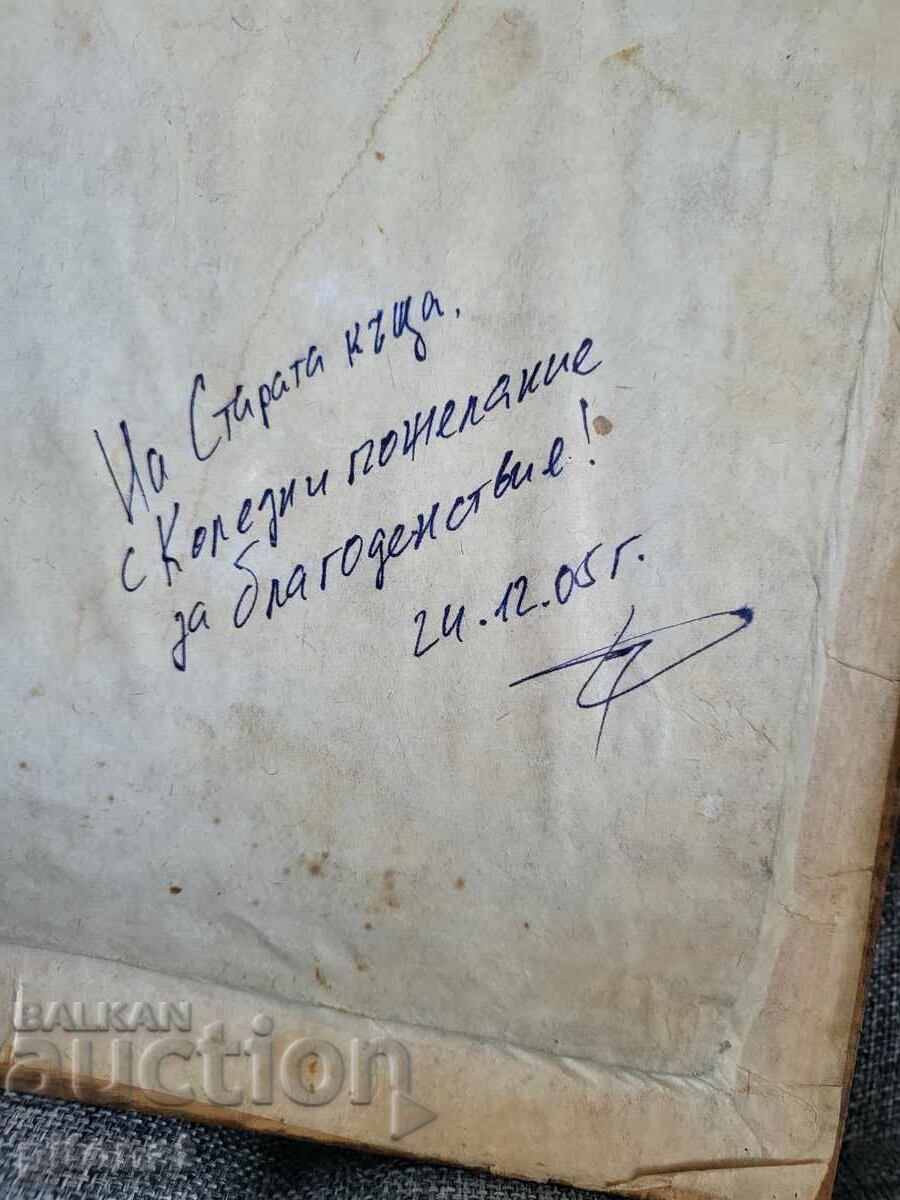 На Старата къща,
с Коледни пожелание
за благоденствие!
24.12.05г.
BALKAN
auction